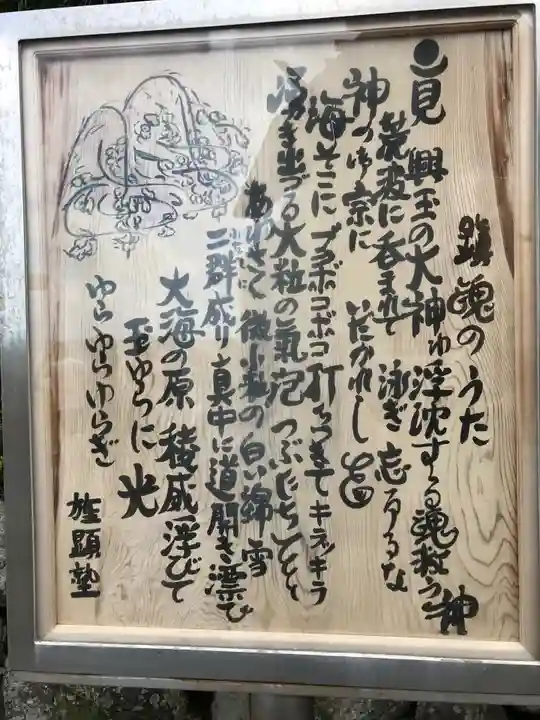 鎮魂のうた
二見興玉の大神ゆ浮沈する魂救う神
荒波に呑まれて 泳ぎ忘るるな
神の御霊に いだかれし
海そこに ブクボコボコ 打ちつきて キラッキラ
湧き出づる大粒の氣泡 つぶだちしとと
あわさて 微小粒の白い綿雪
二群成り真中に道開き漂ひ
大海の原 稜威浮びて
玉ゆらに 光
ゆらゆらゆらぎ
旌顕塾